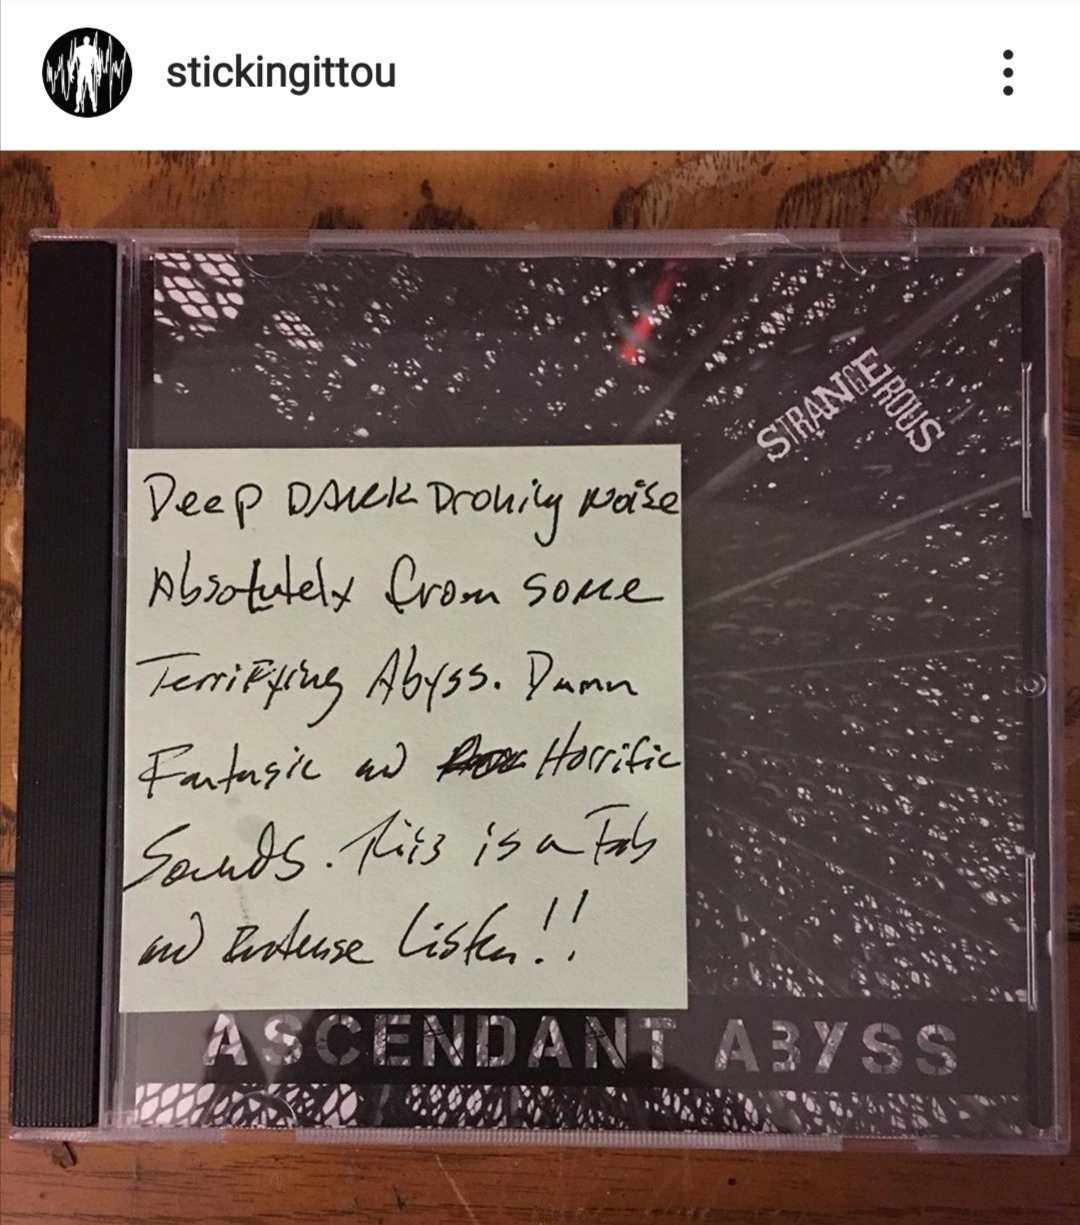 stickingittou
STRANGEROUS
Deep DARK Droning Noise
Absolutely from some
Terrifying Abyss. Damn
Fantasic and Horrific
Sounds. This is a Fab
and Intense Listen!!
ASCENDANT ABYSS